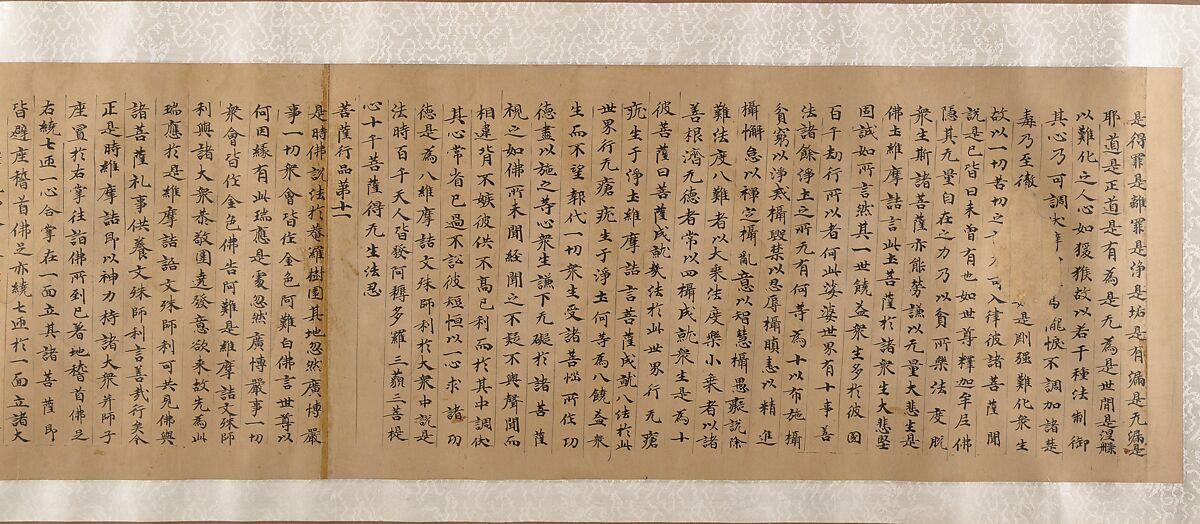 是得罪是離罪是淨是垢是有漏是无漏是
耶道是正道是有為是无為是世間是涅槃
以難化之人心如猨猴故以若干種法制御
其心乃可調伏 悷不調加諸楚
毒乃至徹 是剛强難化衆生
故以一切苦切之 可入律彼諸菩薩聞
說是已皆曰未曾有也如世尊釋迦牟尼佛
隱其无量自在之力乃以貧所樂法度脫
衆生斯諸菩薩亦能勞謙以无量大悲生是
佛土維摩詰言此土菩薩於諸衆生大悲堅
固誠如所言然其一世饒益衆生多於彼國
百千劫行所以者何此娑婆世界有十事善
法諸餘淨土之所无有何等為十以布施攝
貧窮以淨戒攝毀禁以忍辱攝瞋恚以精進
攝懈怠以禪定攝亂意以智慧攝愚癡說除
難法度八難者以大乘法度樂小乘者以諸
善根濟无德者常以四攝成就衆生是為十
彼菩薩曰菩薩成就幾法於此世界行无瘡
疣生于淨土維摩詰言菩薩成就八法於此
世界行无瘡疣生于淨土何等為八饒益衆
生而不望報代一切衆生受諸苦惱所作功
德盡以施之等心衆生謙下无礙於諸菩薩
視之如佛所未聞經聞之不疑不與聲聞而
相違背不嫉彼供不高己利而於其中調伏
其心常省己過不訟彼短恒以一心求諸功
德是為八維摩詰文殊師利於大衆中說是
法時百千天人皆發阿耨多羅三藐三菩提
心十千菩薩得无生法忍
菩薩行品第十一
是時佛說法於菴羅樹園其地忽然廣博嚴
事一切衆會皆作金色阿難白佛言世尊以
何因緣有此瑞應是處忽然廣博嚴事一切
衆會皆作金色佛告阿難是維摩詰文殊師
利與諸大衆恭敬圍遶發意欲來故先為此
瑞應於是維摩詰語文殊師利可共見佛與
諸菩薩礼事供養文殊師利言善哉行矣今
正是時維摩詰即以神力持諸大衆并師子
座置於右掌往詣佛所到已著地稽首佛足
右繞七帀一心合掌在一面立其諸菩薩即
皆避座稽首佛足亦繞七帀於一面立諸大